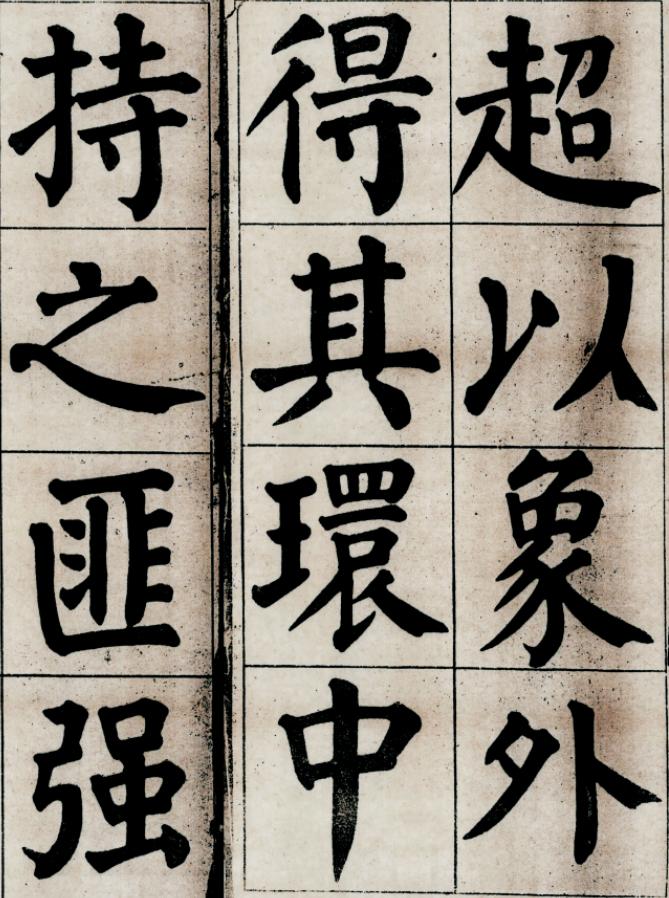 超以象外
得其環中
持之匪强